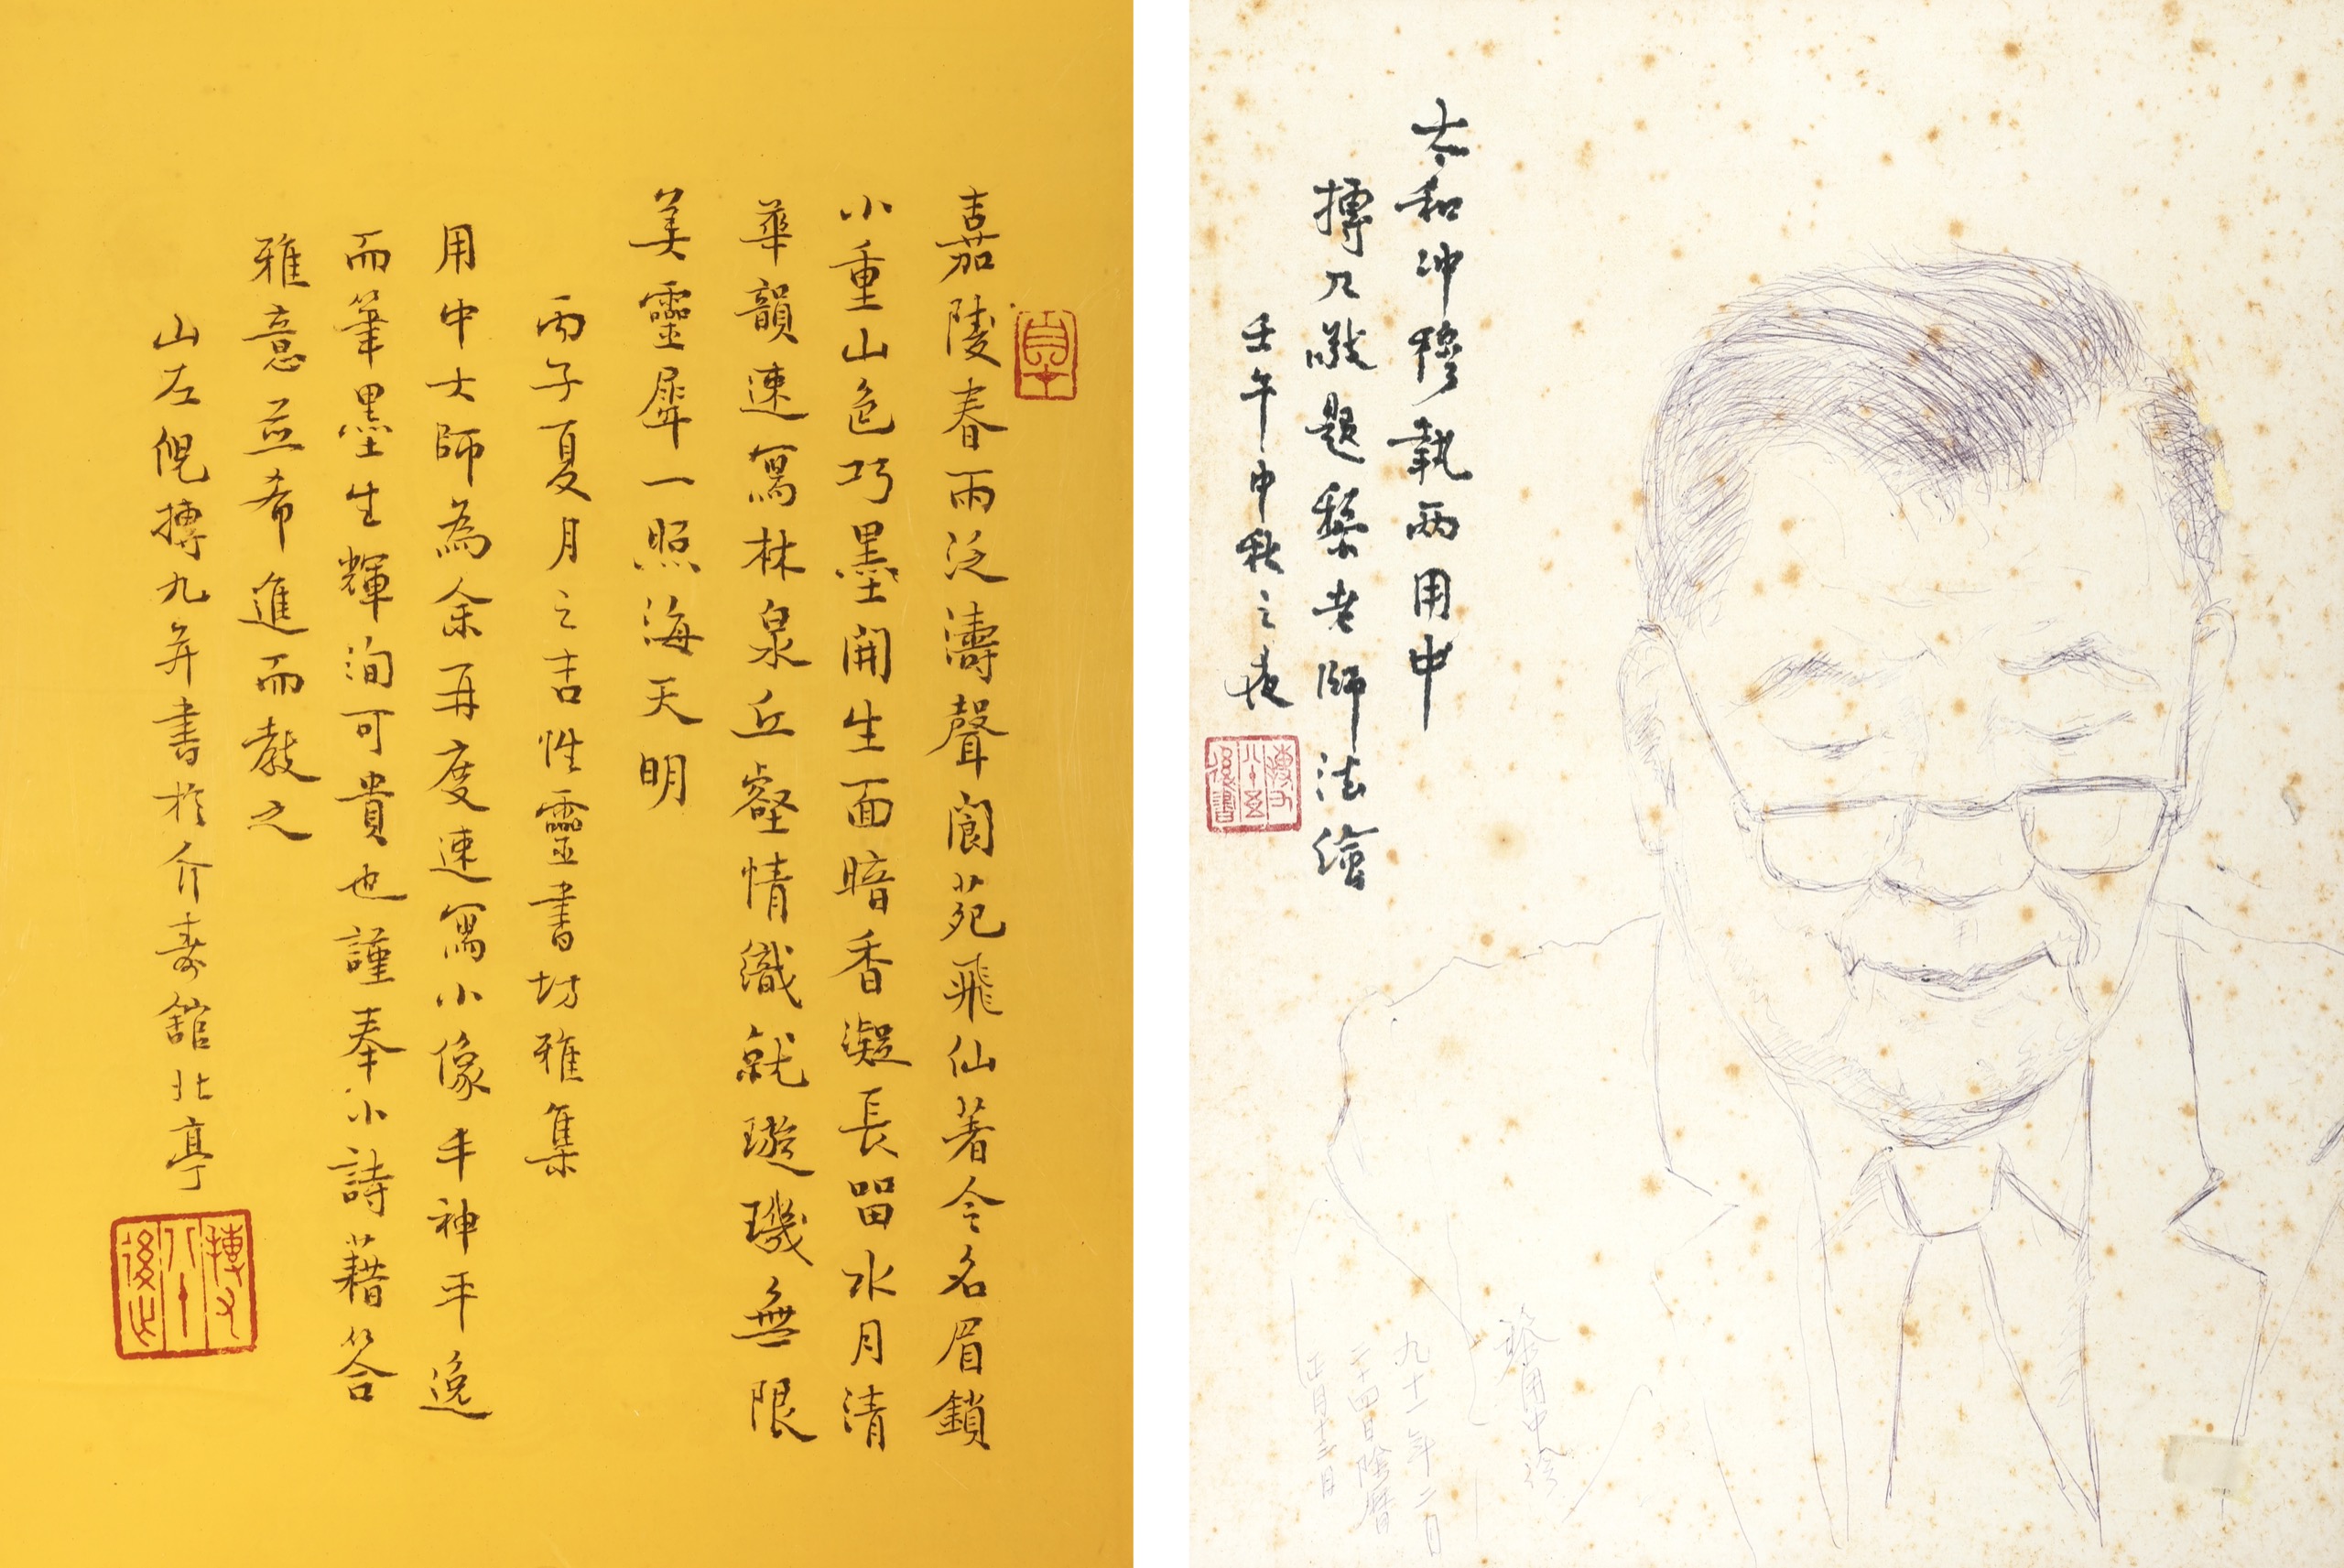 嘉陵春雨泛濤聲閬苑飛仙著令名眉鎖
小重山色巧墨開生面暗香凝長留水月清
華韻速寫林泉丘壑情織就璇璣無限
美靈犀一照海天明
丙子夏月之吉性靈書坊雅集
用中大師為余再度速寫小像丰神平逸
而筆墨生輝洵可貴也謹奉小詩藉答
雅意並希進而教之
山左倪摶九并書於介壽館北亭
摶九
八十
後作
太和沖穆執兩用中
摶九敬題黎老師法繪
壬午中秋之夜
摶九
八十五
後書
黎用中繪
九十一年二月
二十四日陰曆
正月十三日